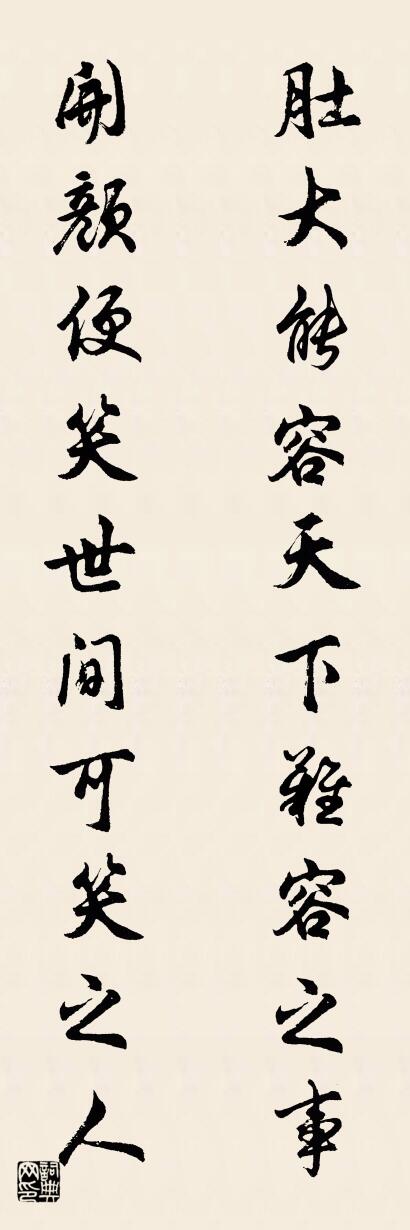 肚大能容天下難容之事
開顏便笑世間可笑之人
詞典网印